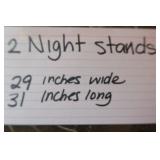 2 Night stands
29 inches wide
31 Inches long